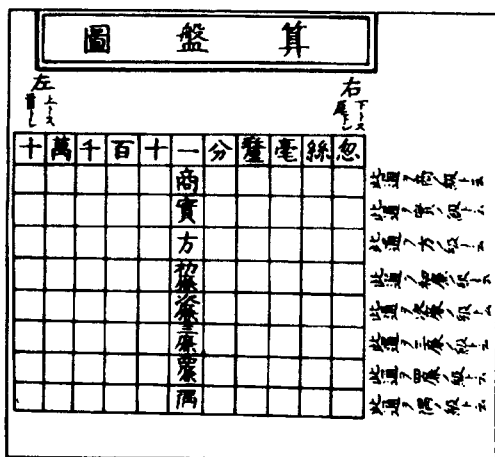 算盤圖
右
下トス
尾トシ
左
上トス
首トシ
十萬千百十一分釐毫絲忽
商
實
方
初廉
次廉
三廉
四廉
隅
此通ヲ商ノ級ト云
此通ヲ實ノ級ト云
此通ヲ方ノ級ト云
此通ヲ初廉ノ級ト云
此通ヲ次廉ノ級ト云
此通ヲ三廉ノ級ト云
此通ヲ四廉ノ級ト云
此通ヲ隅ノ級ト云